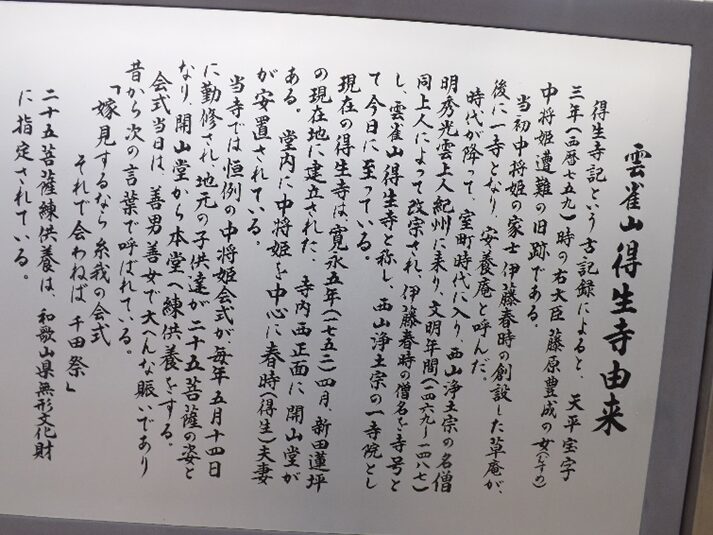 雲雀山得生寺由来
得生寺記という古記録によると、天平宝字
三年(西暦七五九)時の右大臣 藤原豊成の女(むすめ)
中将姫遭難の旧跡である。
当初中将姫の家士 伊藤春時の創設した草庵が、
後に一寺となり、安養庵と呼んだ。
時代が降って、室町時代に入り、西山浄土宗の名僧
明秀光雲上人紀州に来り、文明年間(一四六九〜一四八七)
同上人によって改宗され、伊藤春時の僧名を寺号と
し、雲雀山得生寺と称し、西山浄土宗の一寺院とし
て今日に至っている。
現在の得生寺は寛永五年(一七五二)四月、新田蓮坪
の現在地に建立された、寺内西正面に開山堂が
ある。堂内に中将姫を中心に春時(得生)夫妻
が安置されている。
当寺では恒例の中将姫会式が、毎年五月十四日
に勤修され、地元の子供達が二十五菩薩の姿と
なり、開山堂から本堂へ練供養をする。
会式当日は、善男善女で大へんな賑いであり
昔から次の言葉で呼ばれている。
「嫁見するなら糸我の会式
それで会わねば 千田祭」
二十五菩薩練供養は、和歌山県無形文化財
に指定されている。